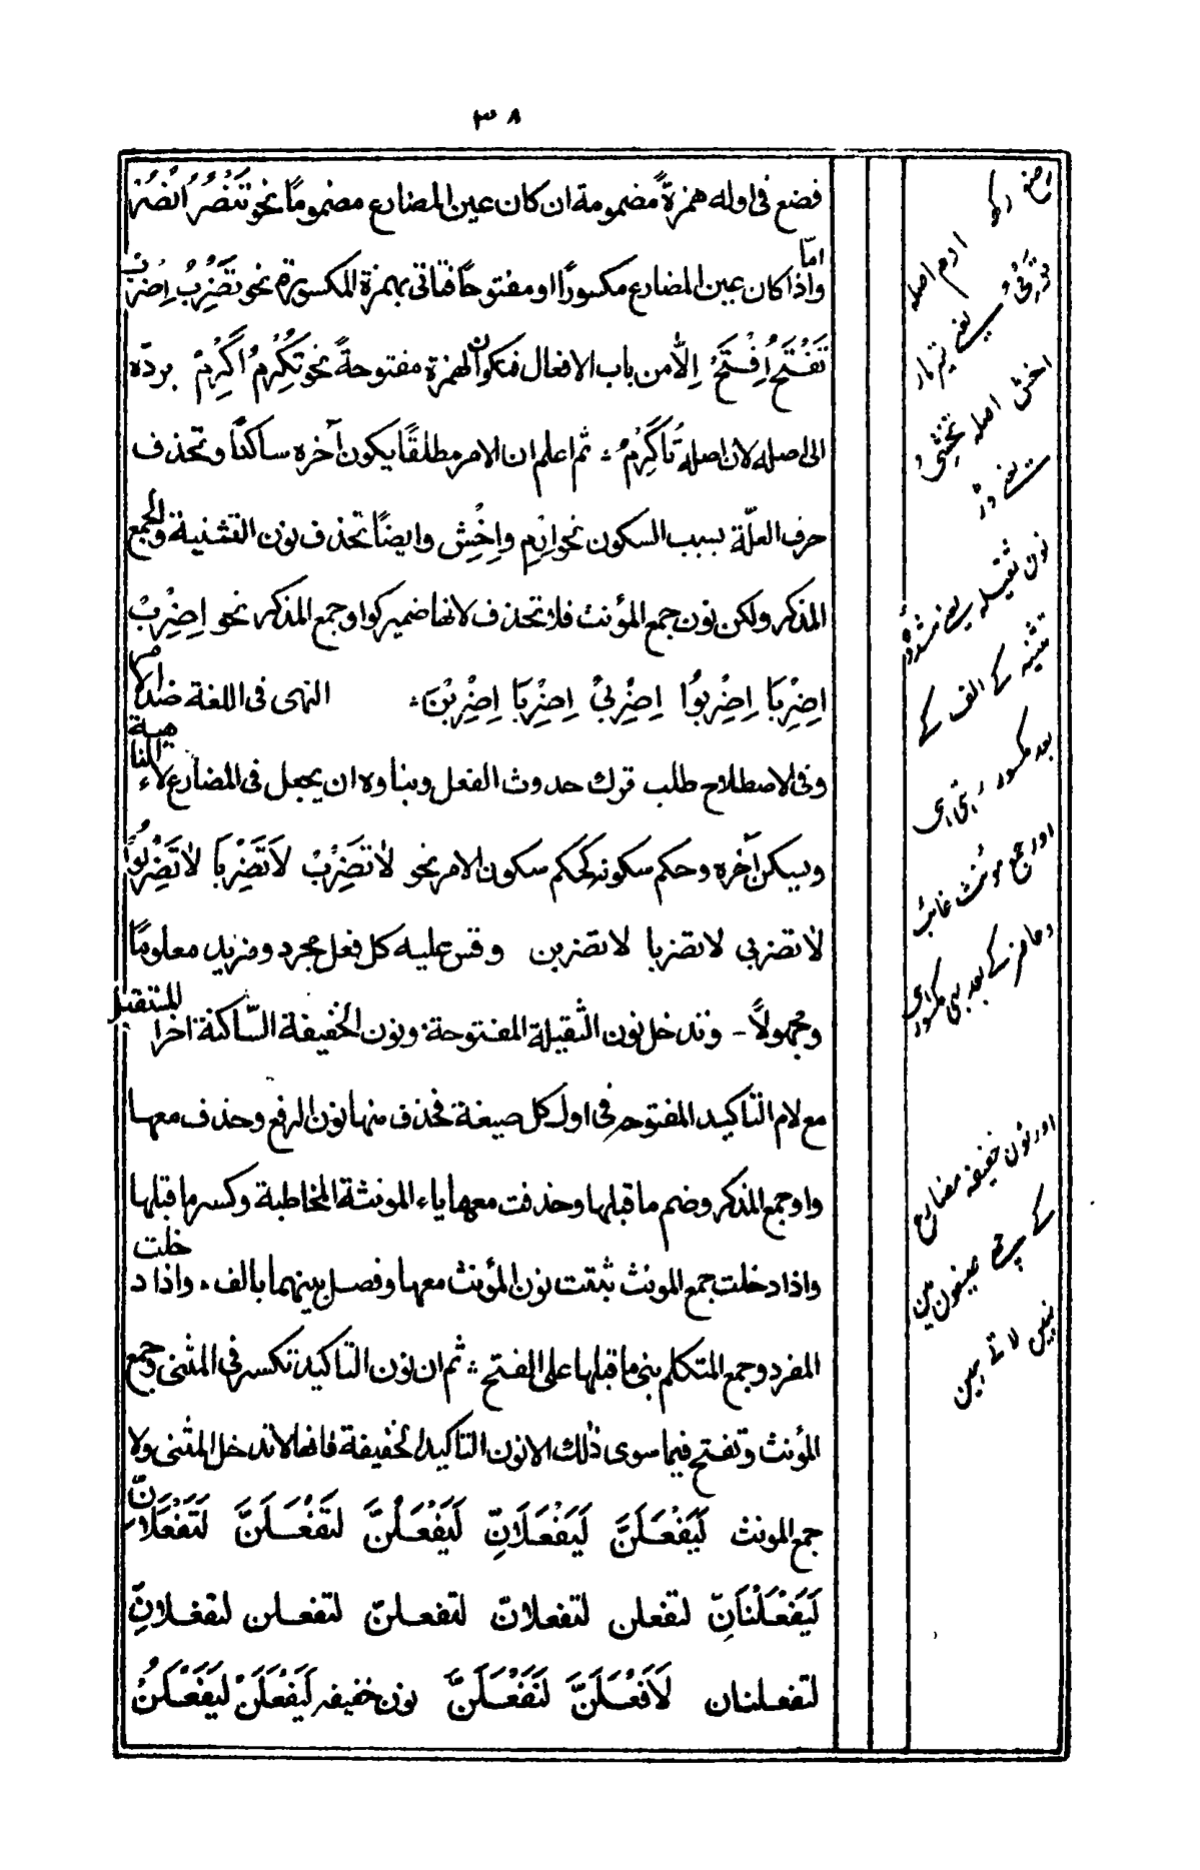 ٣٨
فضع فى اوله همزةً مضمومة ان كان عين المضارع مضمومًا نحو تَنْصُرُ اُنْصُرْ
واذا كان عين المضارع مكسورًا او مفتوحًا فتاتى بهمزة المكسورة نحو تَضْرِبُ اِضْرِبْ
اما
تَفْتَحُ اِفْتَحْ اِلّا من باب الافعال فتكون الهمزة مفتوحةً نحو تُكْرِمُ اَكْرِمْ بردّه
الى اصله لان اصله تُأَكْرِمُ ؞ ثم اعلم ان الامر مطلقًا يكون آخره ساكنًا وتحذف
حرف العلّة بسبب السكون نحو اِرْمِ واِخْشَ وايضًا تحذف نون التثنية والجمع
المذكر ولكن نون جمع المؤنث فلا تحذف لانها ضمير كواو جمع المذكر نحو اِضْرِبْ
اِضْرِبَا اِضْرِبُوْا اِضْرِبِىْ اِضْرِبَا اِضْرِبْنَ ؞ النهى فى اللغة ضد الامر
وفى الاصطلاح طلب ترك حدوث الفعل وبناوه ان يجعل فى المضارع لاء الناهية
ويسكن آخره وحكم سكونه كحكم سكون الامر نحو لَاتَضْرِبْ لَاتَضْرِبَا لَاتَضْرِبُوْا
لاتضربى لاتضربا لاتضربن وقس عليه كل فعل مجرد ومزيد معلومًا
ومجهولًا - وتدخل نون الثقيلة المفتوحة ونون الخفيفة السّاكنة اخر المستقبل
مع لام التاكيد المفتوحه فى اول كل صيغة فحذف منها نون الرفع وحذف معها
واو جمع المذكر وضم ما قبلها وحذفت معها ياء المونثة المخاطبة وكسر ما قبلها
واذا دخلت جمع المونث ثبتت نون المؤنث معها وفصل بينهما بالف ٠ واذا دخلت
المفرد وجمع المتكلم بنى ما قبلها على الفتح ؞ ثم ان نون التاكيد تكسر فى المثنى وجمع
المؤنث وتفتح فيما سوى ذلك الا نون التاكيد الخفيفة فانها لا تدخل المثنى ولا
جمع المونث لَيَفْعَلَنَّ لَيَفْعَلَانِّ لَيَفْعَلُنَّ لَتَفْعَلَنَّ لَتَفْعَلَانِّ
لَيَفْعَلْنَانِّ لتفعلن لتفعلانّ لتفعلنّ لتفعلن لتفعلانِّ
لتفعلنان لَاَفْعَلَنَّ لَنَفْعَلَنَّ نون خفيفه لَيَفْعَلَنْ لَيَفْعَلُنْ
ارم اصله
اخش اصله تخشىُ
نون ثقيله يعنے مشدد
تثنيه كے الف كے
بعد مكسور
اور جمع مونث غائب
وحاضر كے بعد بهى مكسور
اور نون خفيفه مضارع
كے صيغون مين
نہين لاتے ہين